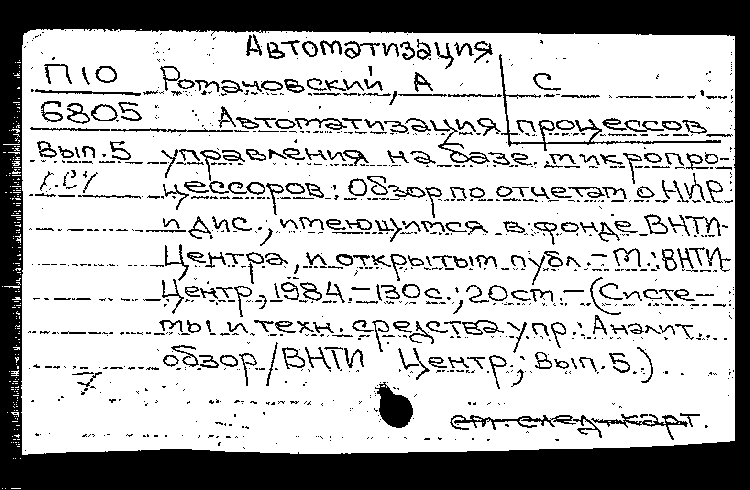 Автоматизация
П10 Романовский, А С
6805 Автоматизация процессов
Вып.5 управления на базе микропро-
цессоров: Обзор по отчетам о НИР
и дис., имеющимся в фонде ВНТИ-
Центра, и открытым публ. - М.: ВНТИ-
Центр, 1984. - 130 с.; 20 см. - (Систе-
мы и техн. средства упр.: Аналит.
обзор / ВНТИ Центр; Вып. 5.)
7
см. след. карт.